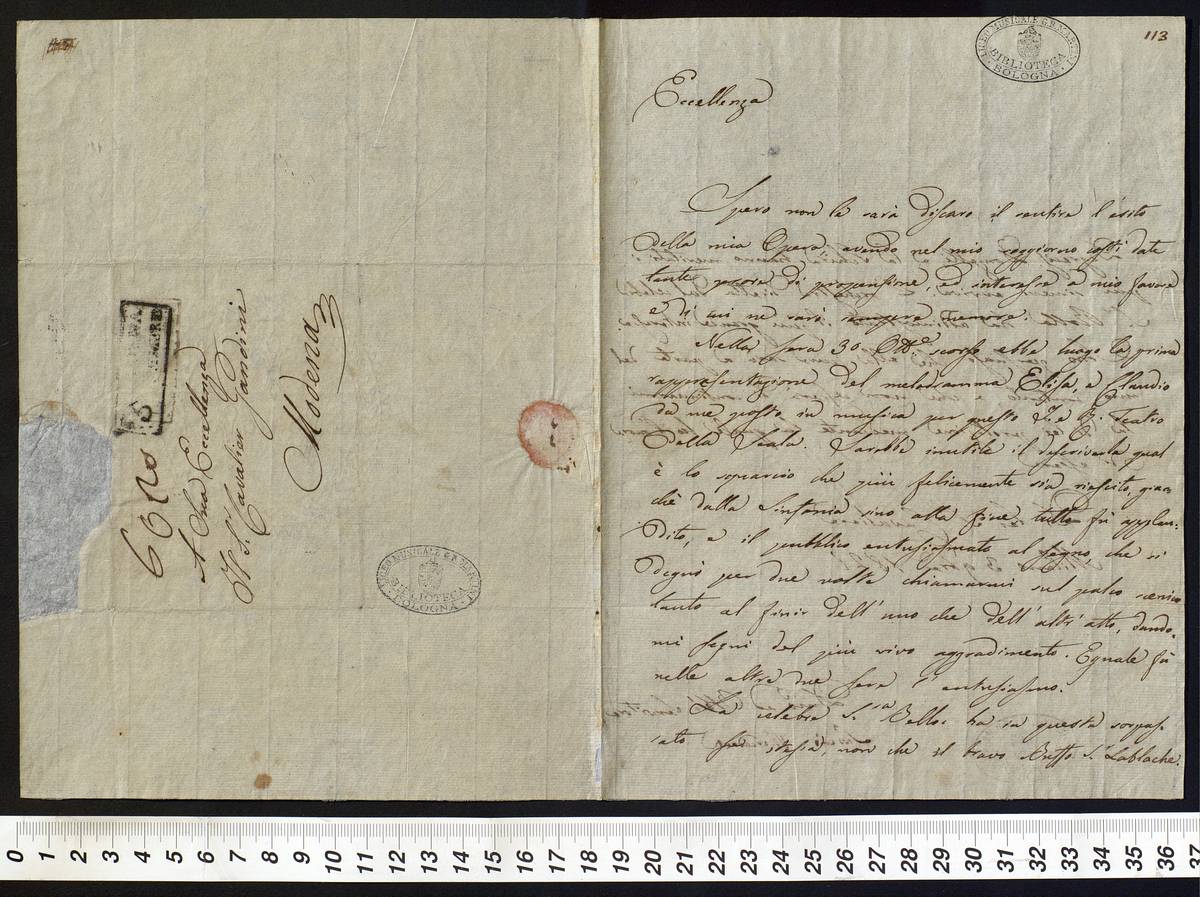 113
LICEO MUSICALE G.B. MARTINI
BIBLIOTECA
BOLOGNA
Eccellenza
Spero non le sarà discaro il sentire l'esito
della mia Opera, avendo nel mio soggiorno costì date
tante prove di propensione, ed interesse a mio favore
e di cui ne sarò sempre memore.
Nella sera 30 Ott.e scorso ebbe luogo la prima
rappresentazione del melodramma Elisa, e Claudio
da me posto in musica per questo I. e R. Teatro
della Scala. Sarebbe inutile il descriverla qual
è lo squarcio che più felicemente sia riescito, giac:
chè dalla Sinfonia sino alla fine tutto fù applau:
dito, e il pubblico entusiasmato al segno che si
degnò per due volte chiamarmi sul palco scenico
tanto al finir dell'uno che dell'altr'atto, dando:
mi segni del più vivo aggradimento. Eguale fù
nelle altre due sere l'entusiasmo.
La celebre S.ra Belloc ha in questa sorpas:
sato se stessa, non che il bravo Buffo S.r Lablache.
A Sua Eccellenza
Il S.r Cavalier Gandini
Modena
LICEO MUSICALE G.B. MARTINI
BIBLIOTECA
BOLOGNA
0 1 2 3 4 5 6 7 8 9 10 11 12 13 14 15 16 17 18 19 20 21 22 23 24 25 26 27 28 29 30 31 32 33 34 35 36 37